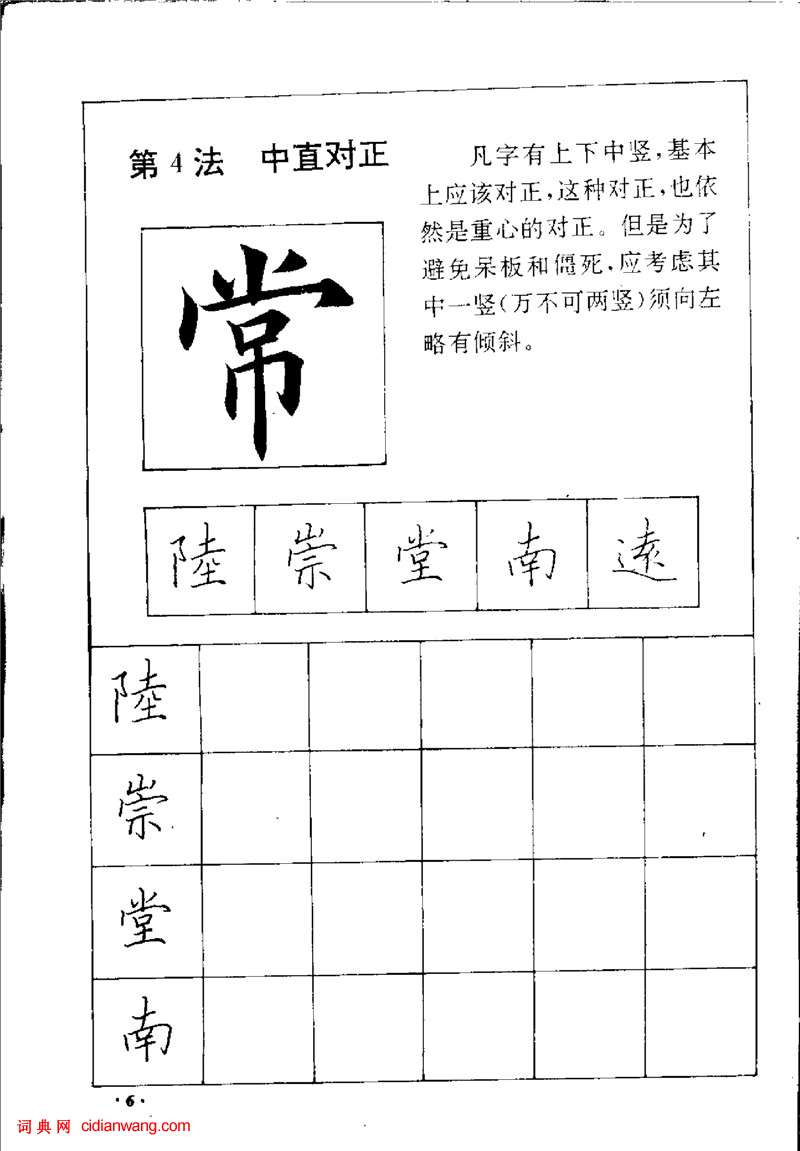 第4法 中直对正
凡字有上下中竖,基本
上应该对正,这种对正,也依
然是重心的对正。但是为了
避免呆板和僵死,应考虑其
中一竖(万不可两竖)须向左
略有倾斜。
常
陸 崇 堂 南 遠
陸
崇
堂
南
·6·
词典网 cidianwang.com